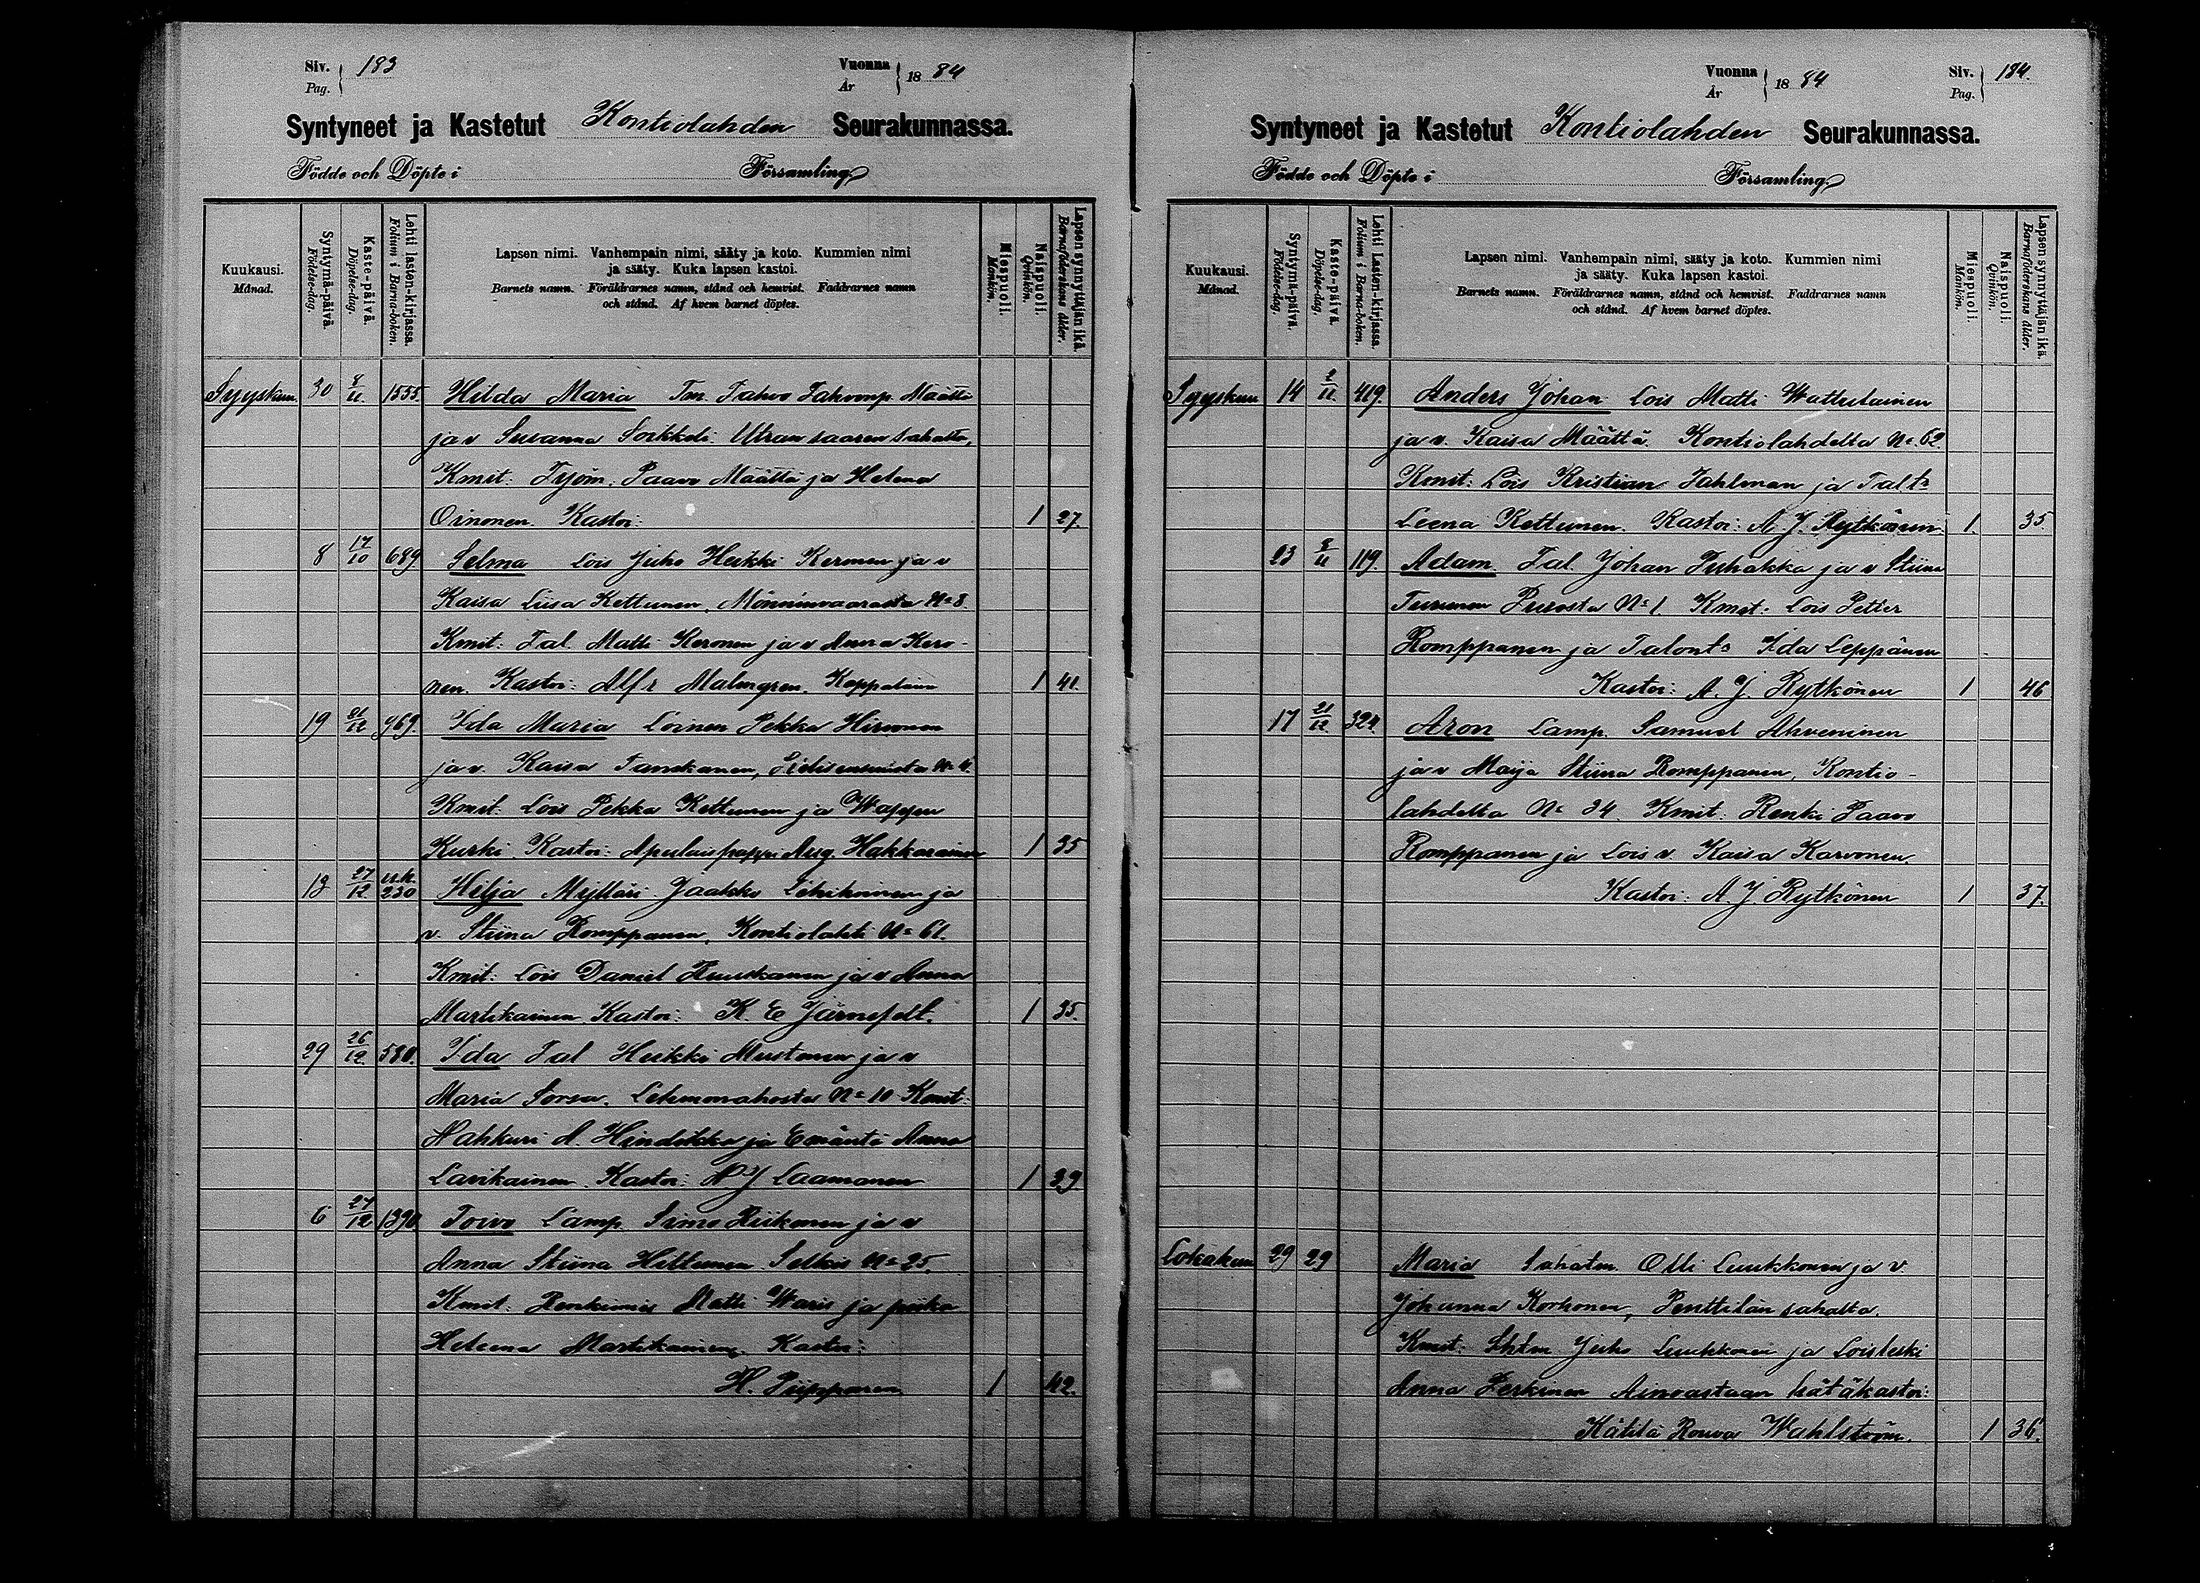 Siv. 183
Pag.
Vuonna 1884
År
Syntyneet ja Kastetut Kontiolahden Seurakunnassa.
Födde och Döpte i Församling
Kuukausi.
Månad.
Syntymä-päivä.
Födelse-dag.
Kaste-päivä.
Döpelse-dag.
Lehti lasten-kirjassa.
Folium i Barna-boken.
Lapsen nimi. Vanhempain nimi, sääty ja koto. Kummien nimi
ja sääty. Kuka lapsen kastoi.
Barnets namn. Föräldrarnes namn, stånd och hemvist. Faddrarnes namn
och stånd. Af hvem barnet döptes.
Miespuoli.
Mankön.
Naispuoli.
Qvinkön.
Lapsen synnyttäjän ikä.
Barnaföderskans ålder.
Syyskuu 30 8/11 1555. Hilda Maria Tm. Pahvo Määttä
ja v Susanna Sorkkeli Utran saaren sahalta,
Kmit: Työm. Paavo Määttä ja Helena
Oinonen. Kastoi: 1 27.
8 17/10 689 Selma Lois Juho Heikki Keronen ja v
Kaisa Liisa Kettunen, Mönninvaarasta No 8.
Kmit: Tal. Matti Keronen ja v Anna Kero-
nen. Kastoi: Alfr Malmgren. Kappalain 1 41.
19 21/12 969. Ida Maria Loinen Pekka Hirvonen
ja v. Kaisa Tanskanen,
Kmit: Lois Pekka Kettunen ja Wappu
Kurki. Kastoi: Apulaispappi Aug. Hakkarainen 1 35
13 27/12 230 Hilja Mylläri Jaakko Lehikoinen ja
v. Stiina Romppanen, Kontiolahti No 61.
Kmit: Lois Daniel Huuskanen ja v Anna
Martikainen. Kastoi: K. E Järnefelt. 1 35.
29 26/12 580. Ida Tal Heikki Mustonen ja v
Maria Sorsa. Lehmonahosta No 10 Kmit:
Nahkuri A. Hindikka ja Emäntä Anna
Lavikainen. Kastoi: Laamanen 1 29
6 27/12 1390 Toivo Lamp. Simo Riikonen ja v
Anna Stiina Hiltunen Selkie No 25.
Kmit: Renkimies Matti Waris ja piika
Heleena Martikainen. Kastoi:
H. Piipponen. 1 42.
Vuonna 1884
År
Siv. 184.
Pag.
Syntyneet ja Kastetut Kontiolahden Seurakunnassa.
Födde och Döpte i Församling
Kuukausi.
Månad.
Syntymä-päivä.
Födelse-dag.
Kaste-päivä.
Döpelse-dag.
Lehti Lasten-kirjassa.
Folium i Barna-boken.
Lapsen nimi. Vanhempain nimi, sääty ja koto. Kummien nimi
ja sääty. Kuka lapsen kastoi.
Barnets namn. Föräldrarnes namn, stånd och hemvist. Faddrarnes namn
och stånd. Af hvem barnet döptes.
Miespuoli.
Mankön.
Naispuoli.
Qvinkön.
Lapsen synnyttäjän ikä.
Barnaföderskans ålder.
Syyskuu 14 2/11 419. Anders Johan Lois Matti Wattulainen
ja v. Kaisa Määttä. Kontiolahdelta No 62.
Kmit: Lois Kristian Sahlman ja Tal.tr
Leena Kettunen. Kastoi: A J. Rytkönen 1. 35.
23 2/11 119. Adam. Tal. Johan Puhakka ja v Stiina
Turunen Puvosta No 1 Kmit: Lois Petter
Romppanen ja Talont: Ida Leppänen
Kastoi: A. J. Rytkönen 1 46
17 21/12 324. Aron Lamp. Samuel Ahveninen
ja v Maija Stiina Romppanen, Kontio-
lahdelta No 34. Kmit: Renki Paavo
Romppanen ja Lois v. Kaisa Karvonen.
Kastoi: A. J Rytkönen 1 37.
Lokakuu 29 29 Maria Sahatm. Olli Luukkonen ja v.
Johanna Korhonen, Penttilän sahalta.
Kmit: Shtm Juho Luukkonen ja Loisleski
Anna Perkinen Ainoastaan hätäkastoi:
Kätilö Rouva Wahlström. 1 36.